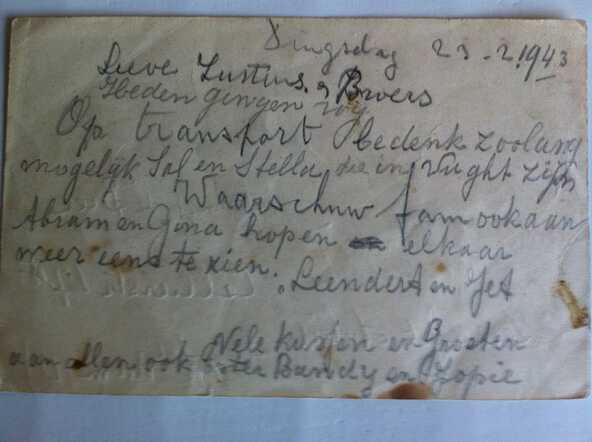 Dingsdag 23-2.1943
Lieve Zusters, Broers
Heden gingen wij
Op transport bedenk zoolang
mogelijk Sal en Stella, die in Vught zijn
Waarschuw fam ook aan
Abram en Gina hopen elkaar
weer eens te zien. Leendert en Jet
Vele kusten en Groeten
aan allen ook Bandy en Jopie